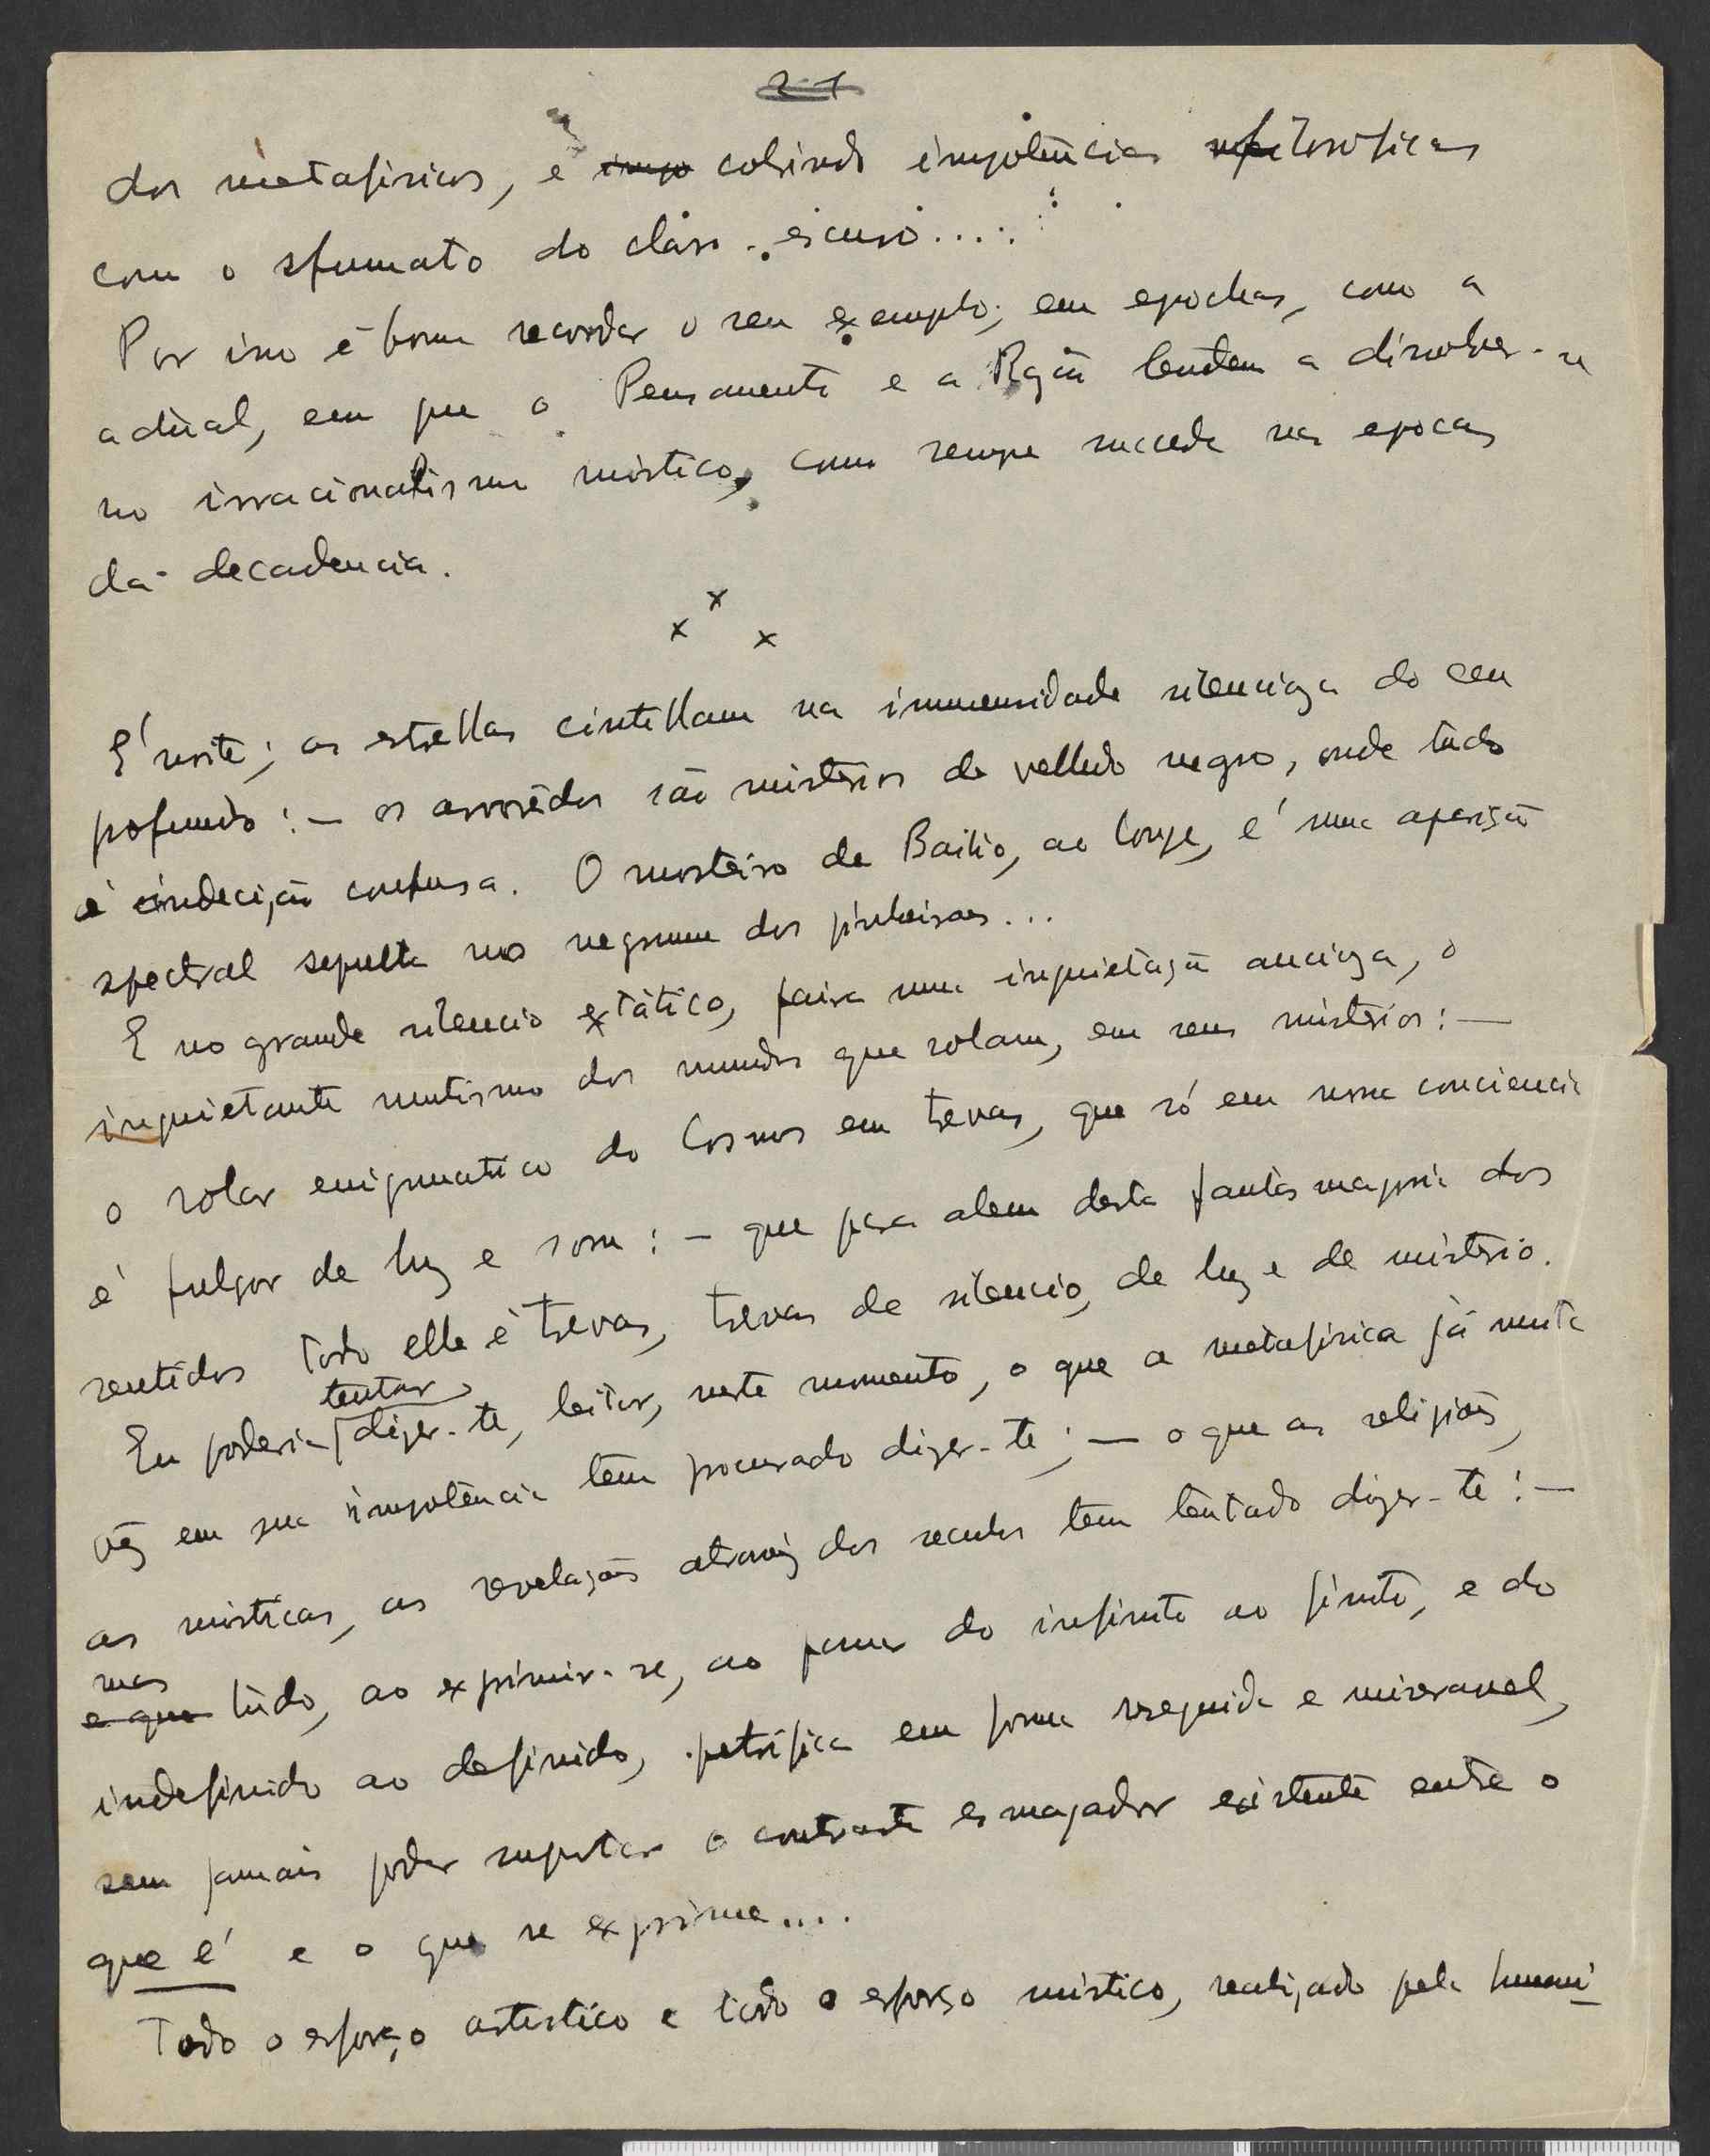 21
dos metafisicos, e impo cobrindo impotências filosoficas
com o sfumato do claro-escuro.....
Por isso é bom recordar o seu exemplo; em epochas, como a
actual, em que o Pensamento e a Rasão tendem a dissolver-se
no irracionalismo mistico, como sempre succede nas epocas
da decadencia.
x x x
E' noite; as estrellas cintillam na immensidade silenciosa do ceu
profundo: — os arvorêdos são misterios de velludo negro, onde tudo
é indecisão confusa. O mosteiro de Bailio, ao longe, e' uma aparição
spectral sepulta no negrume dos pinheiraes...
E no grande silencio extático, paira uma inquietação anciosa, o
inquietante mutismo dos mundos que rolam, em seus misterios: —
o rolar enigmatico do Cosmos em trevas, que só em nossa consciencia
é fulgor de luz e som: — que para alem desta fantasmagoria dos
sentidos todo elle é trevas, trevas de silencio, de luz e de misterio.
Eu poderia tentar dizer-te, leitor, neste momento, o que a metafisica já muita
vez em sua impotência tem procurado dizer-te; — o que as religiões,
as misticas, as revelações atravez dos seculos tem tentado dizer-te: —
e que mas tudo, ao exprimir-se, ao passar do infinito ao finito, e do
indefinido ao definido, petrifica em forma ressequida e miseravel,
sem jamais poder suportar o contraste esmagador existente entre o
que é e o que se exprime....
Todo o esforço artistico e todo o esforço mistico, realizado pela humani-